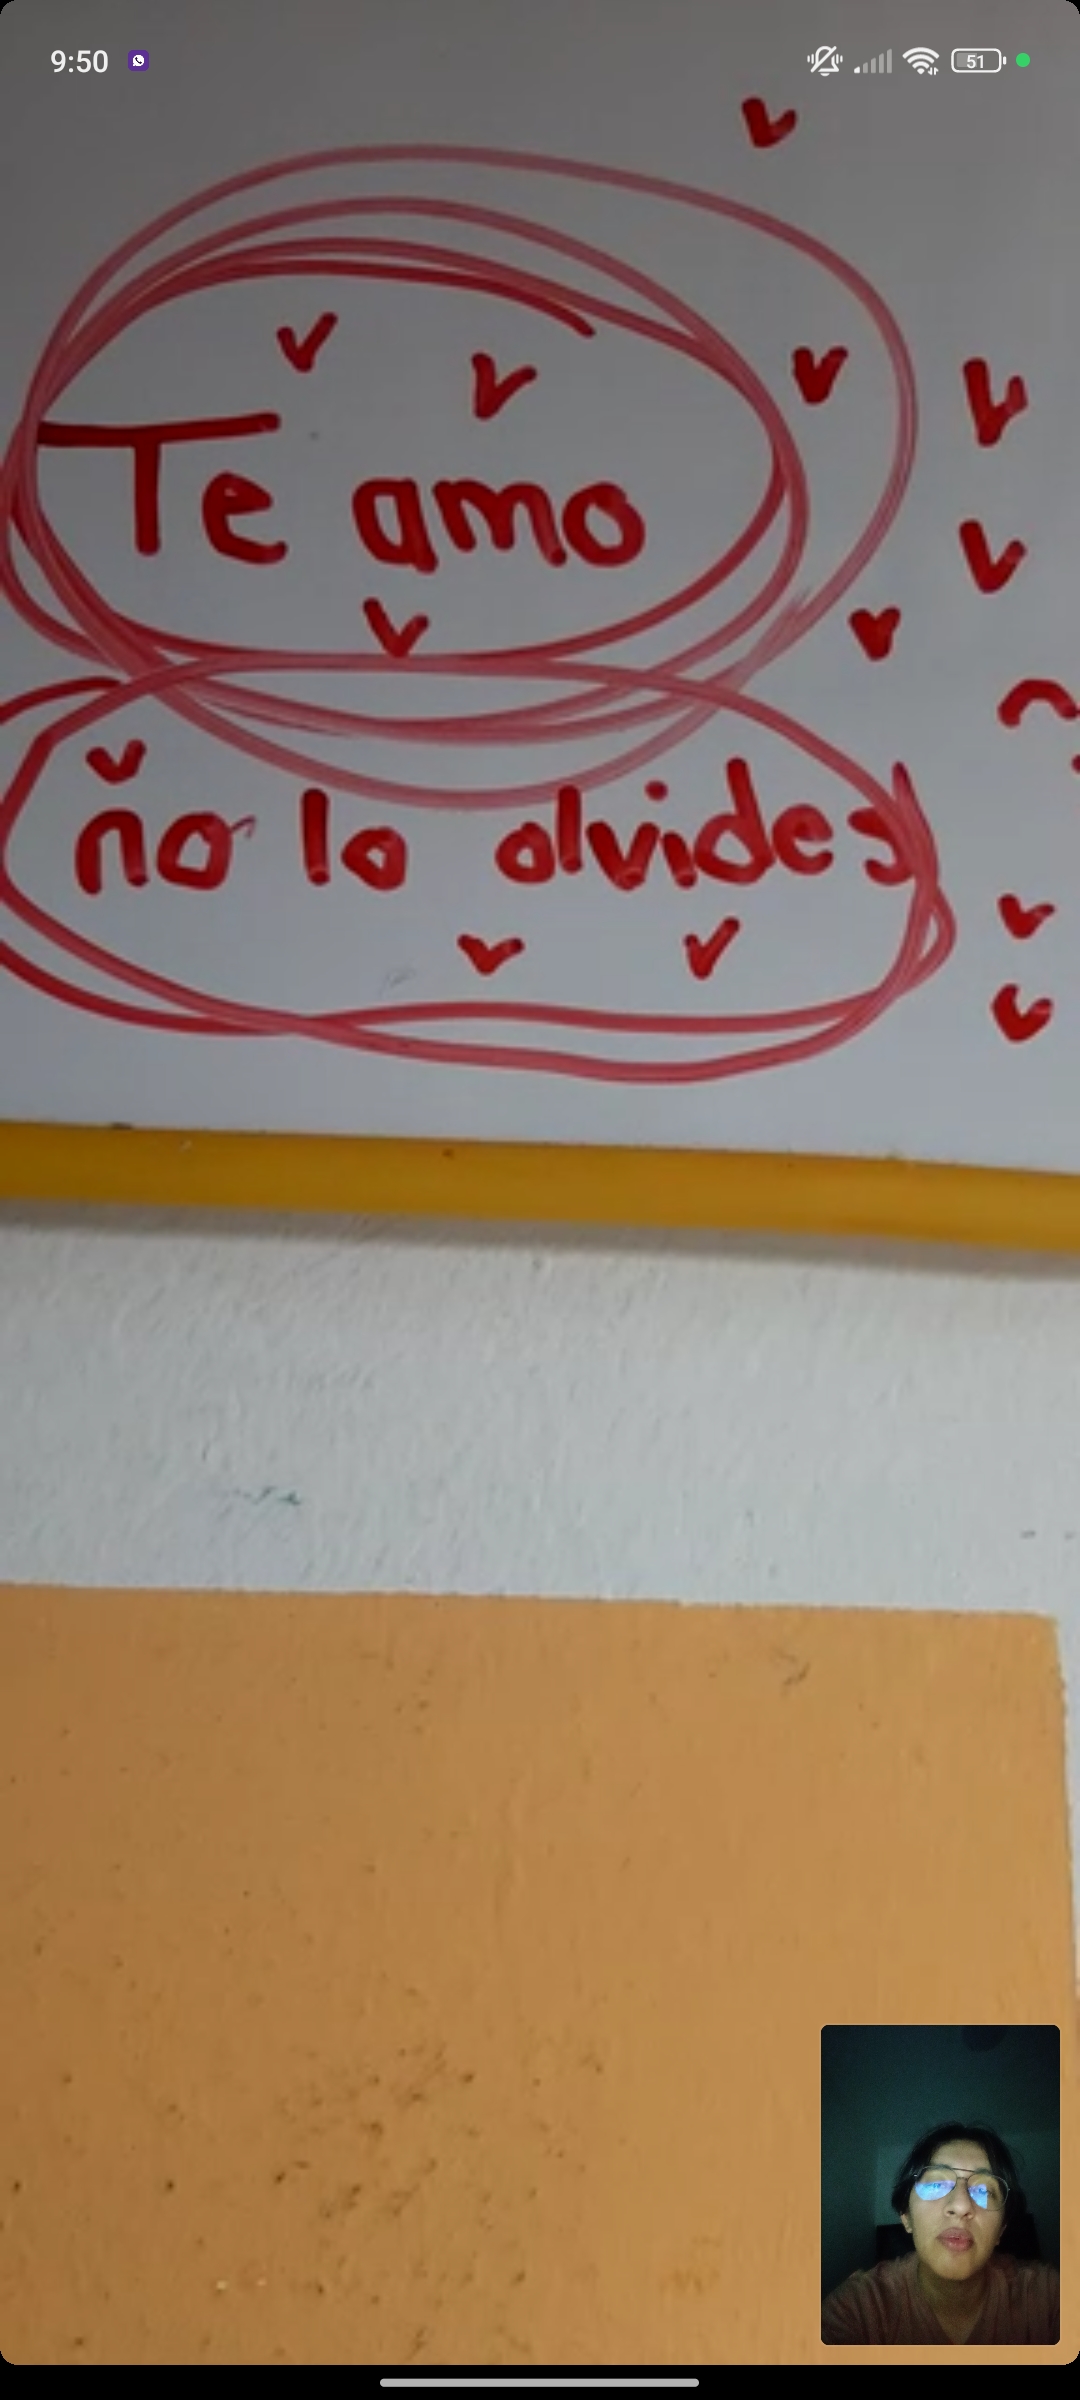 9:50
51
Te amo
no lo olvides